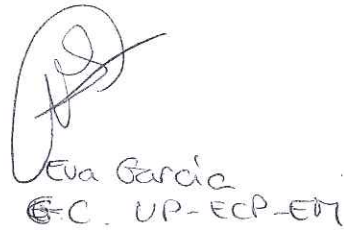 Eva García
G.C. UP-ECP-EM